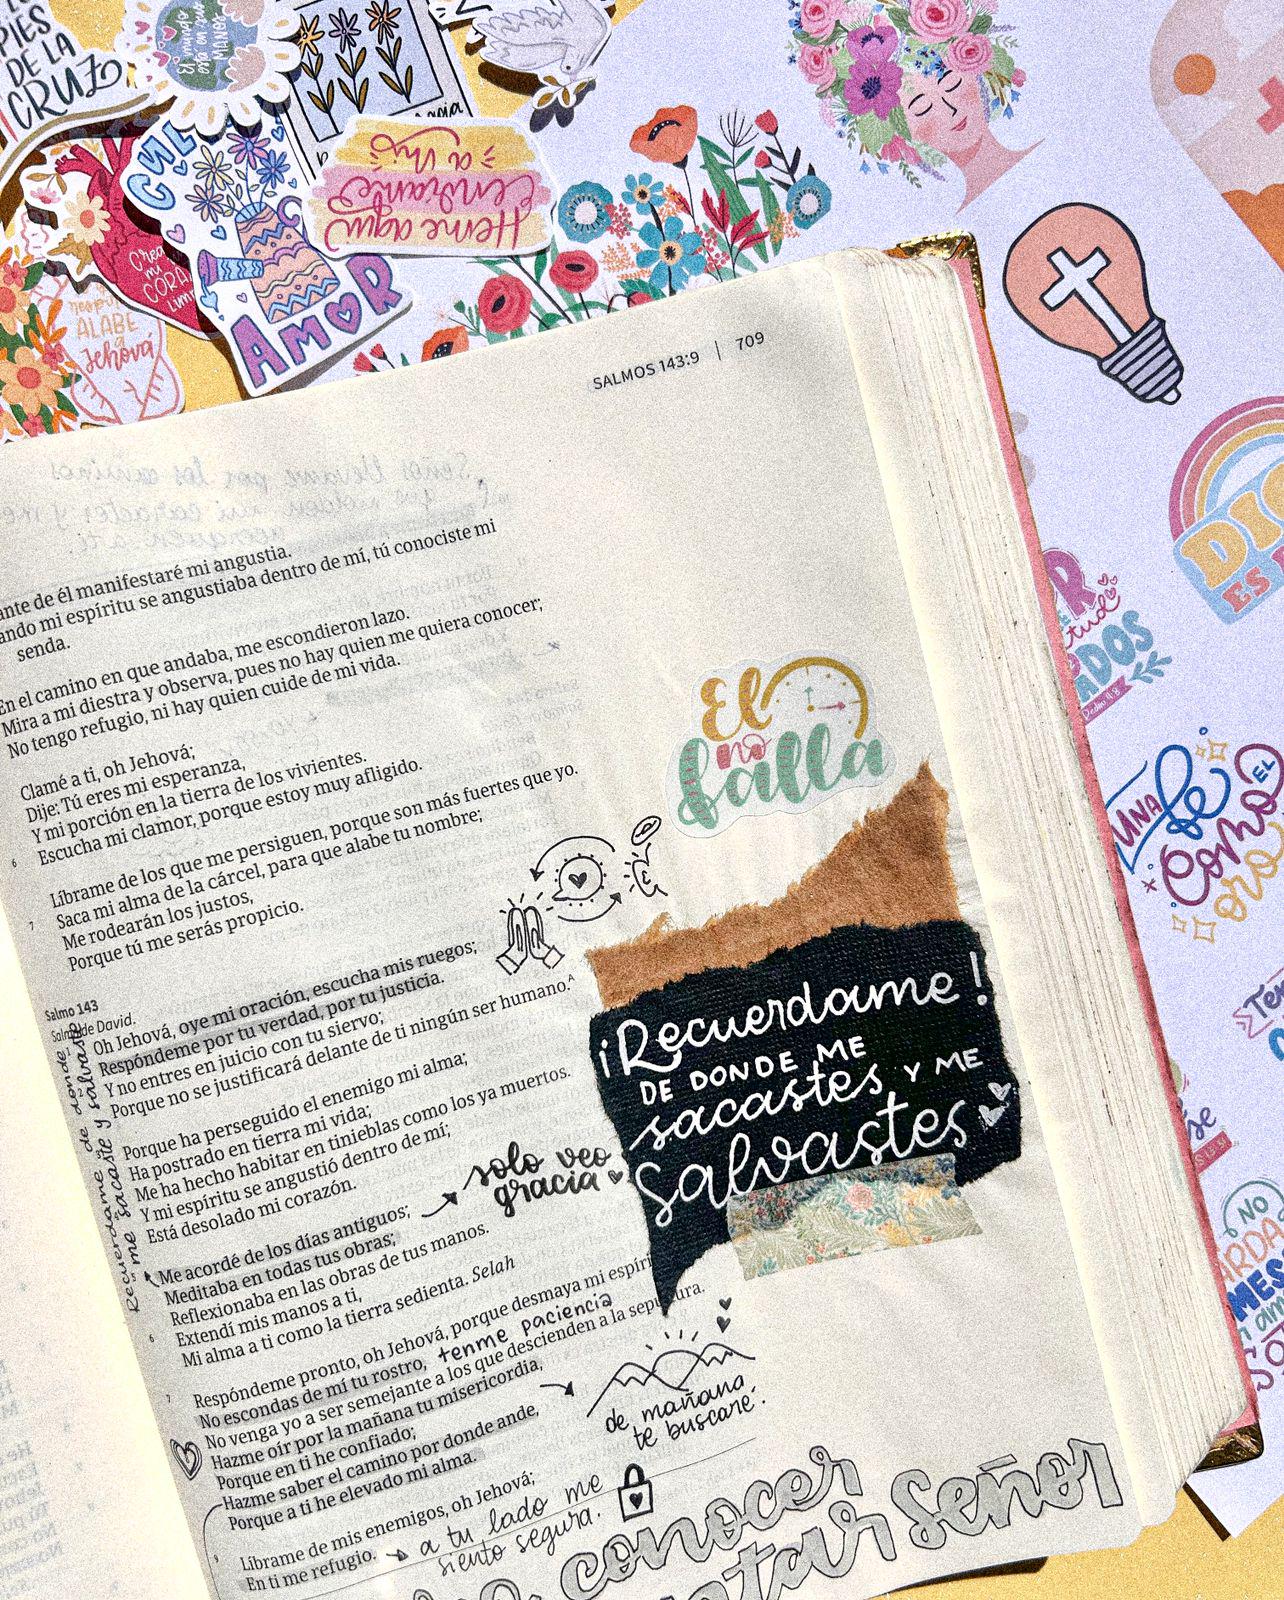 PIES
DE LA
CRUZ
El mundo
está en sus
MANOS
AMOR
Crea
mi
CORA
Lim
ALABE
a
Jehová
Heme aquí
Envíame
a mí
SALMOS 143:9 | 709
Señor llévame por los caminos
que
mi caracter y me
acerquen a ti
ante de él manifestaré mi angustia.
ando mi espíritu se angustiaba dentro de mí, tú conociste mi
senda.
En el camino en que andaba, me escondieron lazo.
Mira a mi diestra y observa, pues no hay quien me quiera conocer;
No tengo refugio, ni hay quien cuide de mi vida.
Clamé a ti, oh Jehová;
Dije: Tú eres mi esperanza,
Y mi porción en la tierra de los vivientes.
6 Escucha mi clamor, porque estoy muy afligido.
Líbrame de los que me persiguen, porque son más fuertes que yo.
7 Saca mi alma de la cárcel, para que alabe tu nombre;
Me rodearán los justos,
Porque tú me serás propicio.
Salmo 143
Salmo de David.
Oh Jehová, oye mi oración, escucha mis ruegos;
Respóndeme por tu verdad, por tu justicia.
Y no entres en juicio con tu siervo;
Porque no se justificará delante de ti ningún ser humano.A
Porque ha perseguido el enemigo mi alma;
Ha postrado en tierra mi vida;
Me ha hecho habitar en tinieblas como los ya muertos.
Y mi espíritu se angustió dentro de mí;
Está desolado mi corazón.
Me acordé de los días antiguos;
Meditaba en todas tus obras;
Reflexionaba en las obras de tus manos.
6 Extendí mis manos a ti,
Mi alma a ti como la tierra sedienta. Selah
7 Respóndeme pronto, oh Jehová, porque desmaya mi espíri
No escondas de mí tu rostro, tenme paciencia
No venga yo a ser semejante a los que descienden a la sepultura.
Hazme oír por la mañana tu misericordia,
Porque en ti he confiado;
Hazme saber el camino por donde ande,
Porque a ti he elevado mi alma.
9 Líbrame de mis enemigos, oh Jehová;
En ti me refugio.
Recuerdame de donde
me sacaste y salvaste
solo veo
gracia
de mañana
te buscaré.
a tu lado me
siento segura.
conocer
Señor
El
no
falla
¡Recuerdame!
DE DONDE ME
sacastes Y ME
Salvastes
DIO
ES
R
ADOS
Pedro 4:8
UNA
fe
Como EL
oro
NO
ARDA
MES